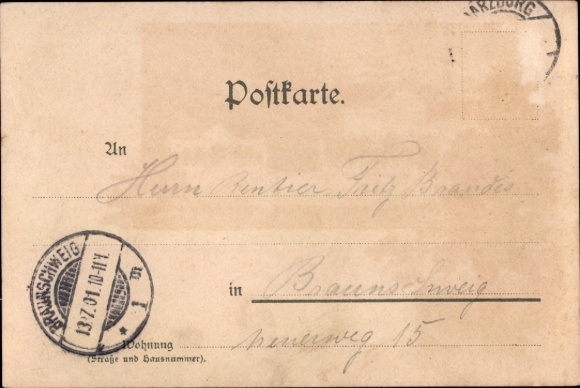 ARZBURG
Postkarte.
An
Herrn Rentier Fritz Brandes
BRAUNSCHWEIG
13.7.01.10-11V.
* 1 m
in Braunschweig
15
Wohnung
(Straße und Hausnummer).